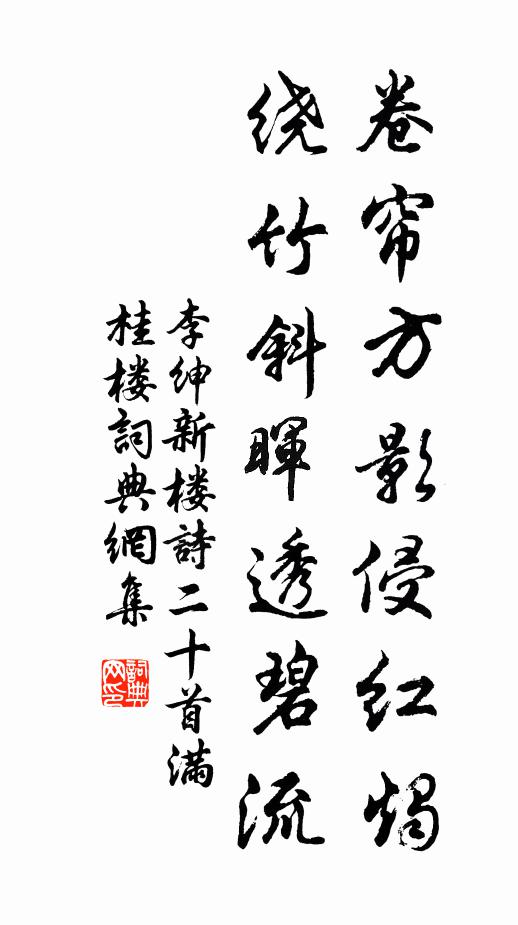 卷帘方影侵红烛
绕竹斜暉透碧流
李绅新楼詩二十首满
桂楼詞典網集
詞典
网印